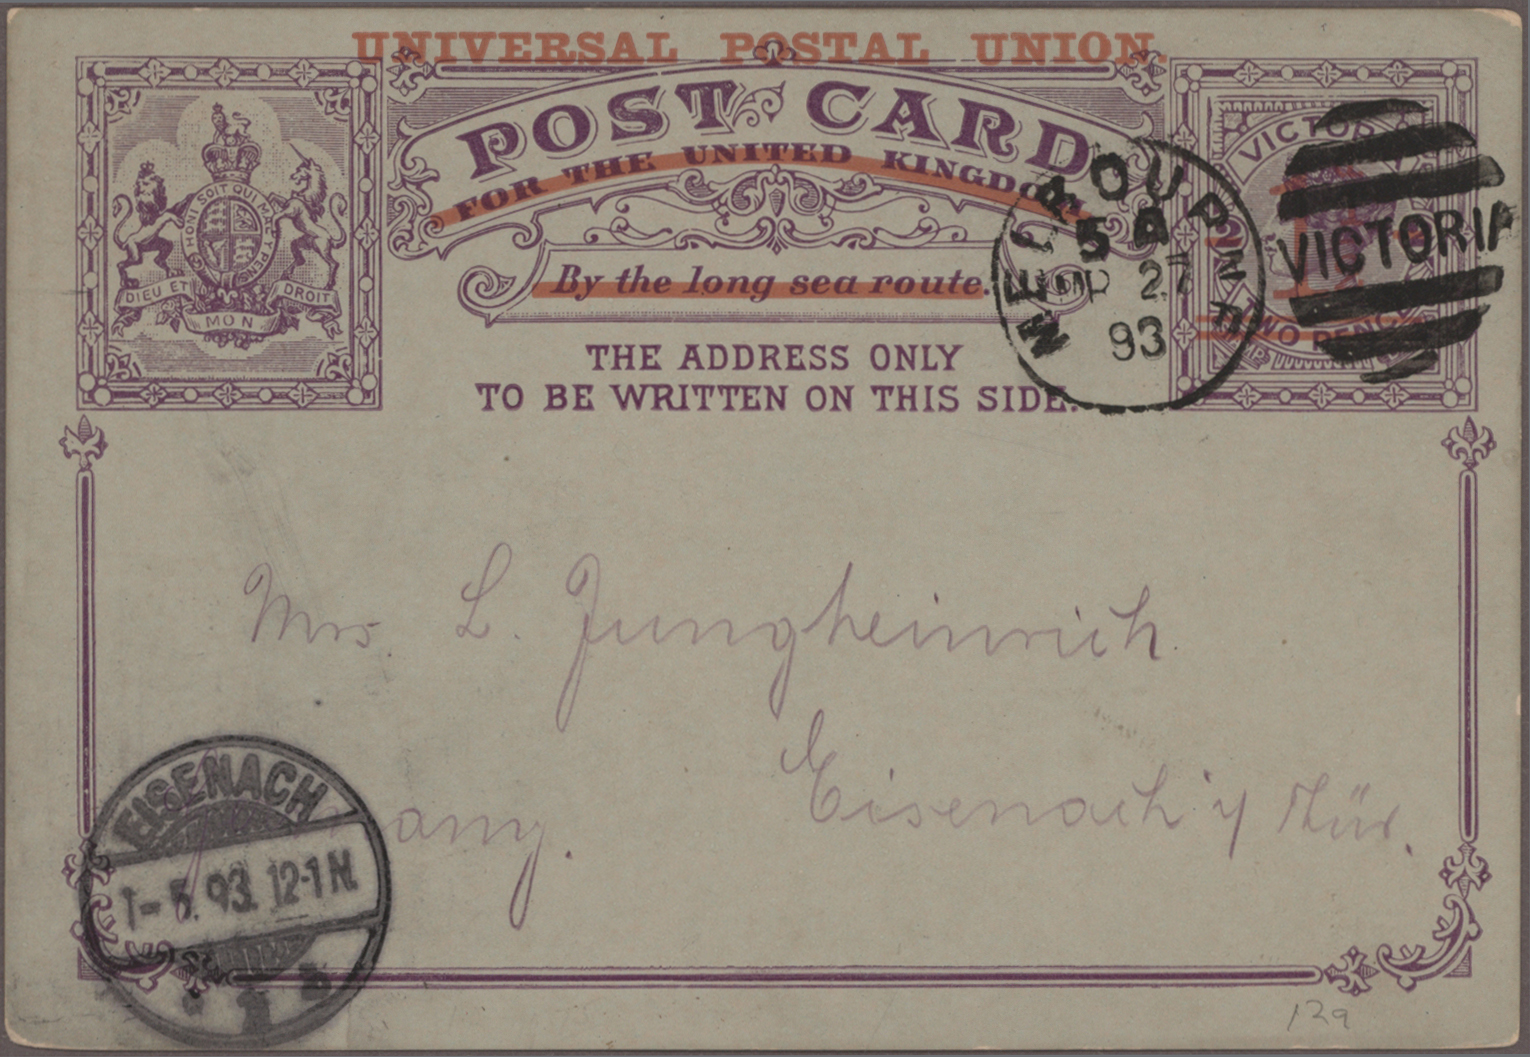 UNIVERSAL POSTAL UNION.
POST CARD
FOR THE UNITED KINGDOM
By the long sea route.
HONI SOIT QUI MAL Y PENSE
DIEU ET
MON
DROIT
VICTORIA
TWO PENCE
5 A
27
93
VICTORIA
THE ADDRESS ONLY
TO BE WRITTEN ON THIS SIDE.
Mrs L. Jungheinrich
Eisenach i/ Thür.
EISENACH
1-5.93.12-1N.
129